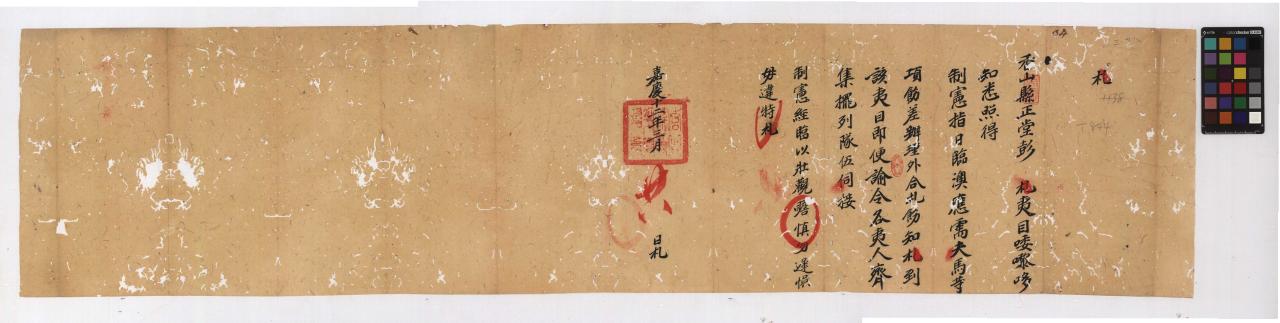 札
香山縣正堂彭 札夷目唩嚟哆
知悉照得
制憲指日臨澳應需夫馬等
項飭差辦理外合札飭知札到
該夷目即便諭令各夷人齊
集擺列隊伍伺接
制憲經臨以壯觀瞻慎勿遲悞
毋違特札
嘉慶十二年三月 日札